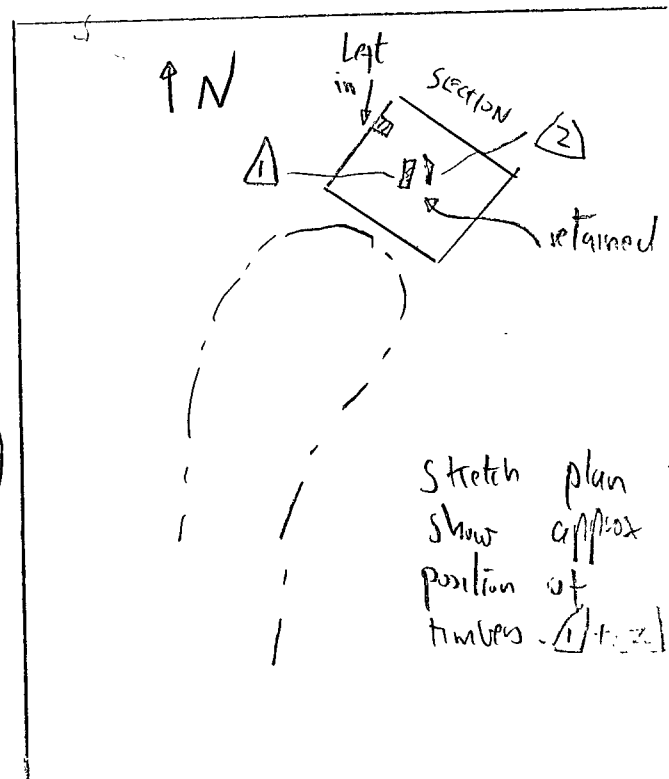 N
Left
in
SECTION
2
1
retained
Sketch plan
show approx
position of
timbers. 1 +